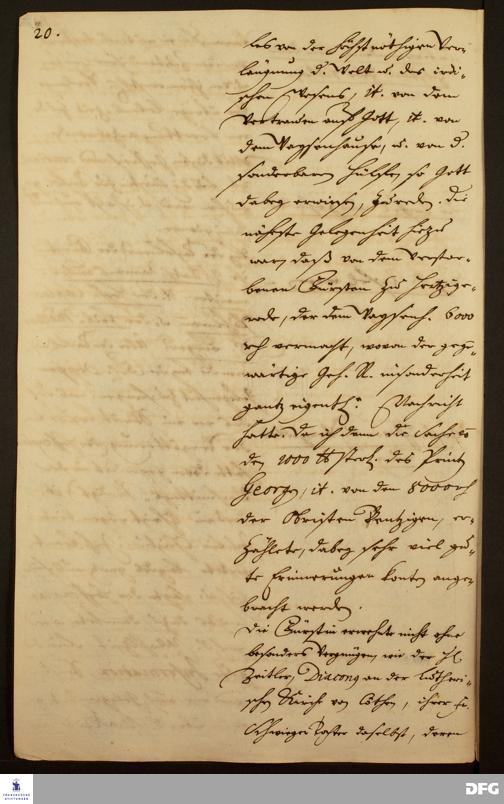 20.
les von der höchst nöthigen Ver-
läugnung d. Welt u. des irdi-
schen Wesens, it. von dem
Vertrauen auf Gott, it. von
dem Waysenhause, u. von d.
sonderbaren Hülffe, so Gott
dabey erwiesen, zu reden. Die
nächste Gelegenheit hiezu
war, daß von dem verstor-
benen Bürsten zu
rode, der dem Waysenh. 6000
rh vermacht, wovon der gegen-
wärtige Geh. R. insonderheit
gantz eigentl. Nachricht
hatte. Da ich denn die Sache
der 1000 lb sterl. des Printz
Georgen, it. von den 8000 rh
der Obristen er-
zählete, dabey sehr viel gu-
te Erinnerungen konten ange-
bracht werden.
Die Fürstin erwehnte nicht ohne
besonders Vergnügen, wie der H.
Zeitler, Diaconus an der Lutheri-
schen Kirche von Cöthen, ihrer Fr.
Schwieger daselbst, deren
DFG